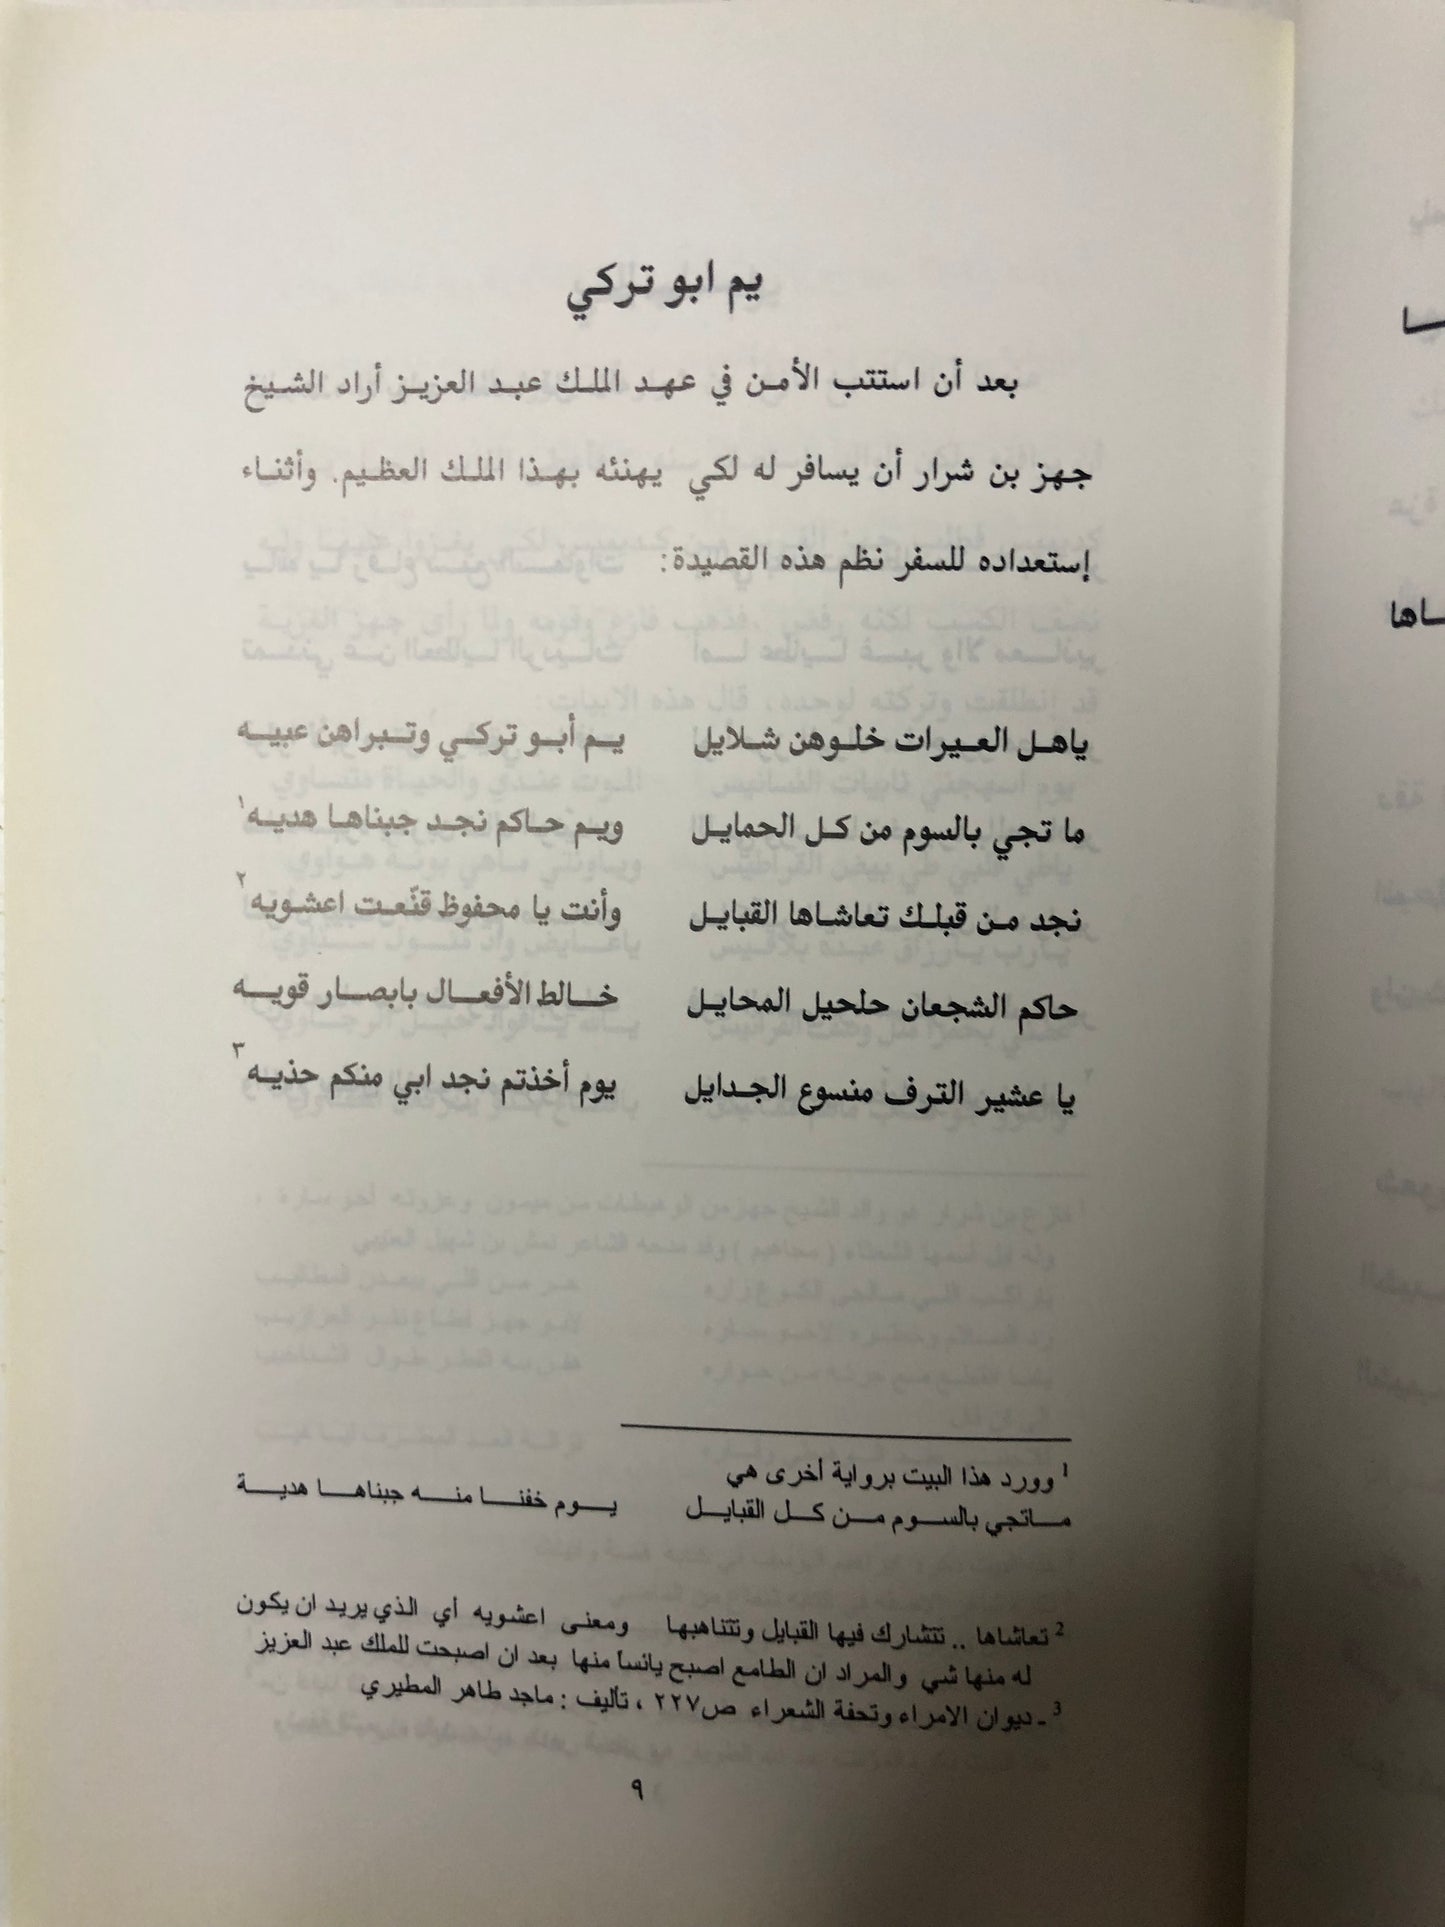 يم ابو تركي
بعد أن استتب الأمن في عهد الملك عبد العزيز أراد الشيخ
جهز بن شرار أن يسافر له لكي يهنئه بهذا الملك العظيم. وأثناء
إستعداده للسفر نظم هذه القصيدة:
ياهل العيرات خلوهن شلايل يم أبو تركي وتبراهن عبيه
ما تجي بالسوم من كل الحمايل ويم حاكم نجد جبناها هديه ١
نجد من قبلك تعاشاها القبايل وأنت يا محفوظ قنّعت اعشويه ٢
حاكم الشجعان حلحيل المحايل خالط الأفعال بابصار قويه
يا عشير الترف منسوع الجدايل يوم أخذتم نجد ابي منكم حذيه ٣
1 وورد هذا البيت برواية أخرى هي
ماتجي بالسوم من كل القبايل يوم خفنا منه جبناها هدية
2 تعاشاها .. تتشارك فيها القبايل وتتناهبها ومعنى اعشويه أي الذي يريد ان يكون
له منها شي والمراد ان الطامع اصبح يائساً منها بعد ان اصبحت للملك عبد العزيز
3 ـ ديوان الامراء وتحفة الشعراء ص٢٢٧ ، تأليف : ماجد طاهر المطيري
٩